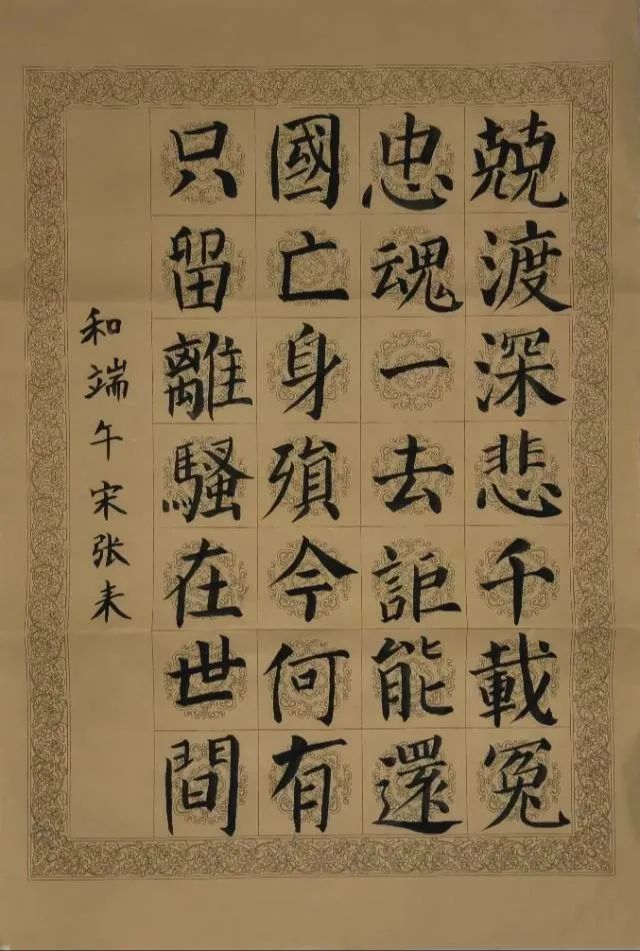 兢渡深悲千載冤
忠魂一去詎能還
國亡身殞今何有
只留離騷在世間
和端午宋张耒